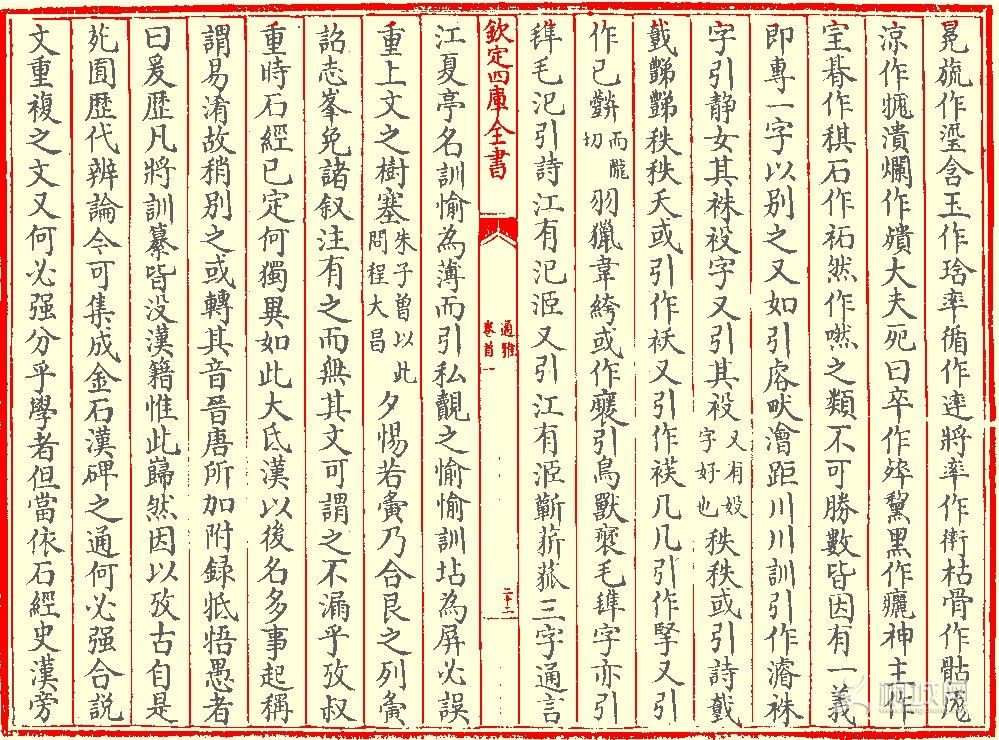 冕旒作瑬含玉作琀率循作䢦將率作衛枯骨作骷尨
涼作㹁潰爛作殨大夫死曰卒作㱚黧黑作癘神主作
宝朞作稘石作祏然作嘫之類不可勝數皆因有一義
即專一字以別之又如引𧮫畎澮距川川訓引作濬袾
字引静女其袾祋字又引其祋又有㚼字好也秩秩或引詩戴
戴𧯷𧯷秩秩夭或引作枖又引作䄏几几引作掔又引
作已㲝而隴切羽獵韋絝或作襃引鳥獸褎毛𣯍字亦引
𣯍毛汜引詩江有汜洍又引江有洍蘄菥菰三字通言
欽定四庫全書
通雅
卷首一
二十二
江夏亭名訓愉為薄而引私覿之愉愉訓坫為屏必誤
重上文之樹塞朱子曾以此問程大昌夕惕若夤乃合艮之列夤
詔志峯免諸叙注有之而無其文可謂之不漏乎攷叔
重時石經已定何獨異如此大氐漢以後名多事起稱
謂易淆故稍別之或轉其音晉唐所加附録牴牾愚者
曰爰歴凡將訓纂皆没漢籍惟此巋然因以攷古自是
苑囿歴代辨論今可集成金石漢碑之通何必强合説
文重複之文又何必强分乎學者但當依石經史漢旁